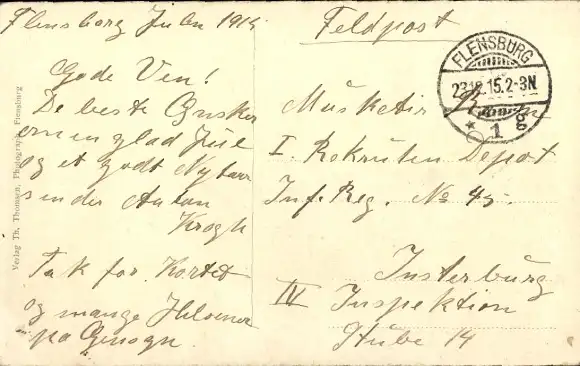 Flensborg Julen 1915
Gode Ven!
De beste Ønsker
om en glad Jul
og et godt Nytaar
sender Anton
Krogh
Tak for Kortet
og mange Hilsener
paa Gensyn.
Verlag Th. Thomsen, Photograph, Flensburg
Feldpost
FLENSBURG
23.12.15.2-3N.
* 1 g
Musketir
I. Rekruten Depot
Inf. Reg. No 45.
Insterburg
IV Inspektion
Stube 14